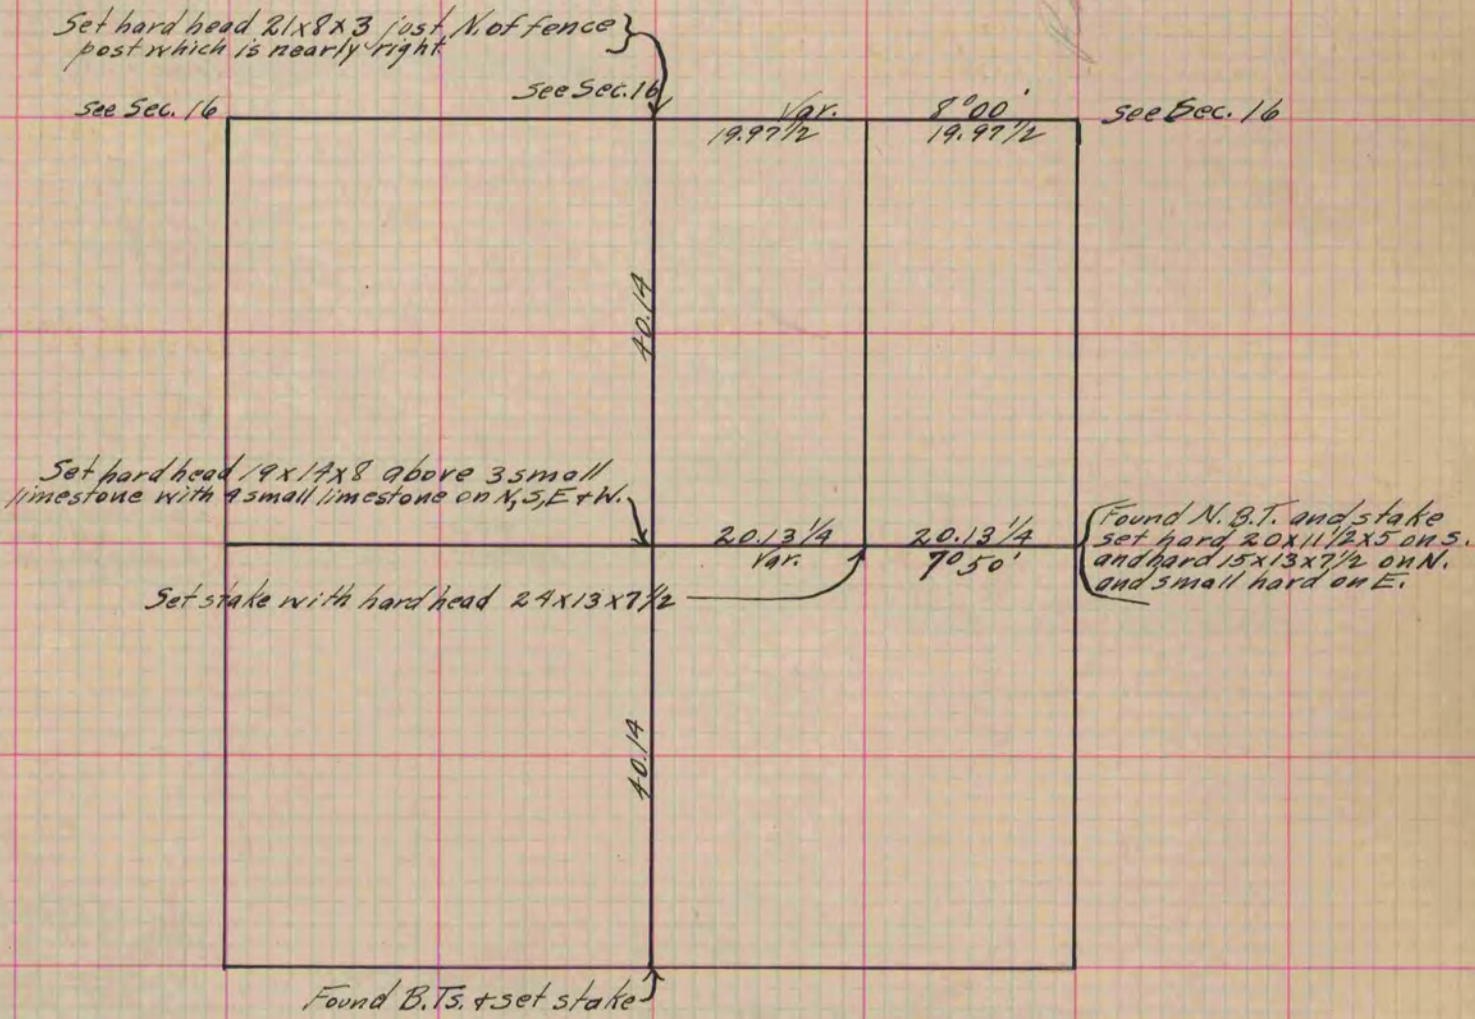 Set hard head 21x8x3 just N. of fence
post which is nearly right
see Sec. 16
see Sec. 16
Var. 8°00'
see Sec. 16
19.97½
19.97½
40.14
Set hard head 19x14x8 above 3 small
limestone with 4 small limestone on N, S, E & W.
20.13¼
Var.
20.13¼
7°50'
Found N. B.T. and stake
set hard 20x11½x5 on S.
and hard 15x13x7½ on N.
and small hard on E.
Set stake with hard head 24x13x7½
40.14
Found B.Ts. & set stake